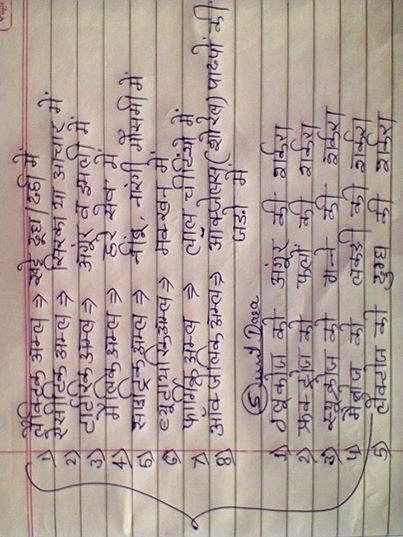 1) लैक्टिक अम्ल ⇒ खट्टे दूध / दही में
2) ऐसीटिक अम्ल ⇒ सिरका या आचार में
3) टार्टरिक अम्ल ⇒ अंगूर व इमली में
4) मैलिक अम्ल ⇒ हरे सेव में
5) साइट्रिक अम्ल ⇒ नींबू, नारंगी मौसमी में
6) ब्यूटायरिक अम्ल ⇒ मक्खन में
7) फार्मिक अम्ल ⇒ लाल चीटियों में
8) ऑक्जेलिक अम्ल ⇒ ऑक्जेलिस (शोरेल) पादपों की
जड़ो में
1) ग्लूकोज को अंगूर की शर्करा
2) फ्रक्टोज को फलों की शर्करा
3) स्यूक्रोज को गन्ने की शर्करा
4) मैनोज को लकड़ी की शर्करा
5) लैक्टोज को दुग्ध की शर्करा